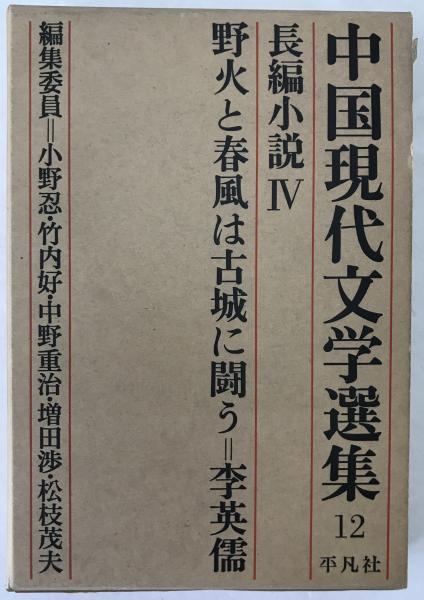 中国現代文学選集
12
平凡社
長編小説Ⅳ
野火と春風は古城に闘う=李英儒
編集委員=小野忍・竹内好・中野重治・増田渉・松枝茂夫